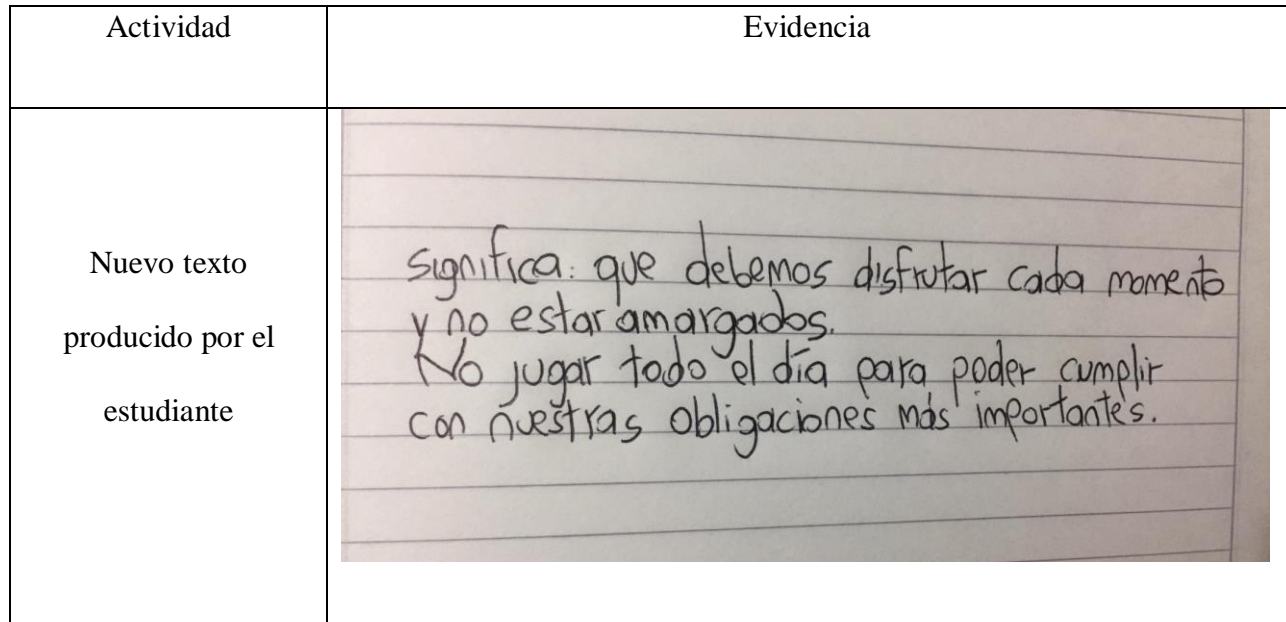 Actividad
Evidencia
Nuevo texto
producido por el
estudiante
significa: que debemos disfrutar cada momento
y no estar amargados.
No jugar todo el día para poder cumplir
con nuestras obligaciones más importantes.